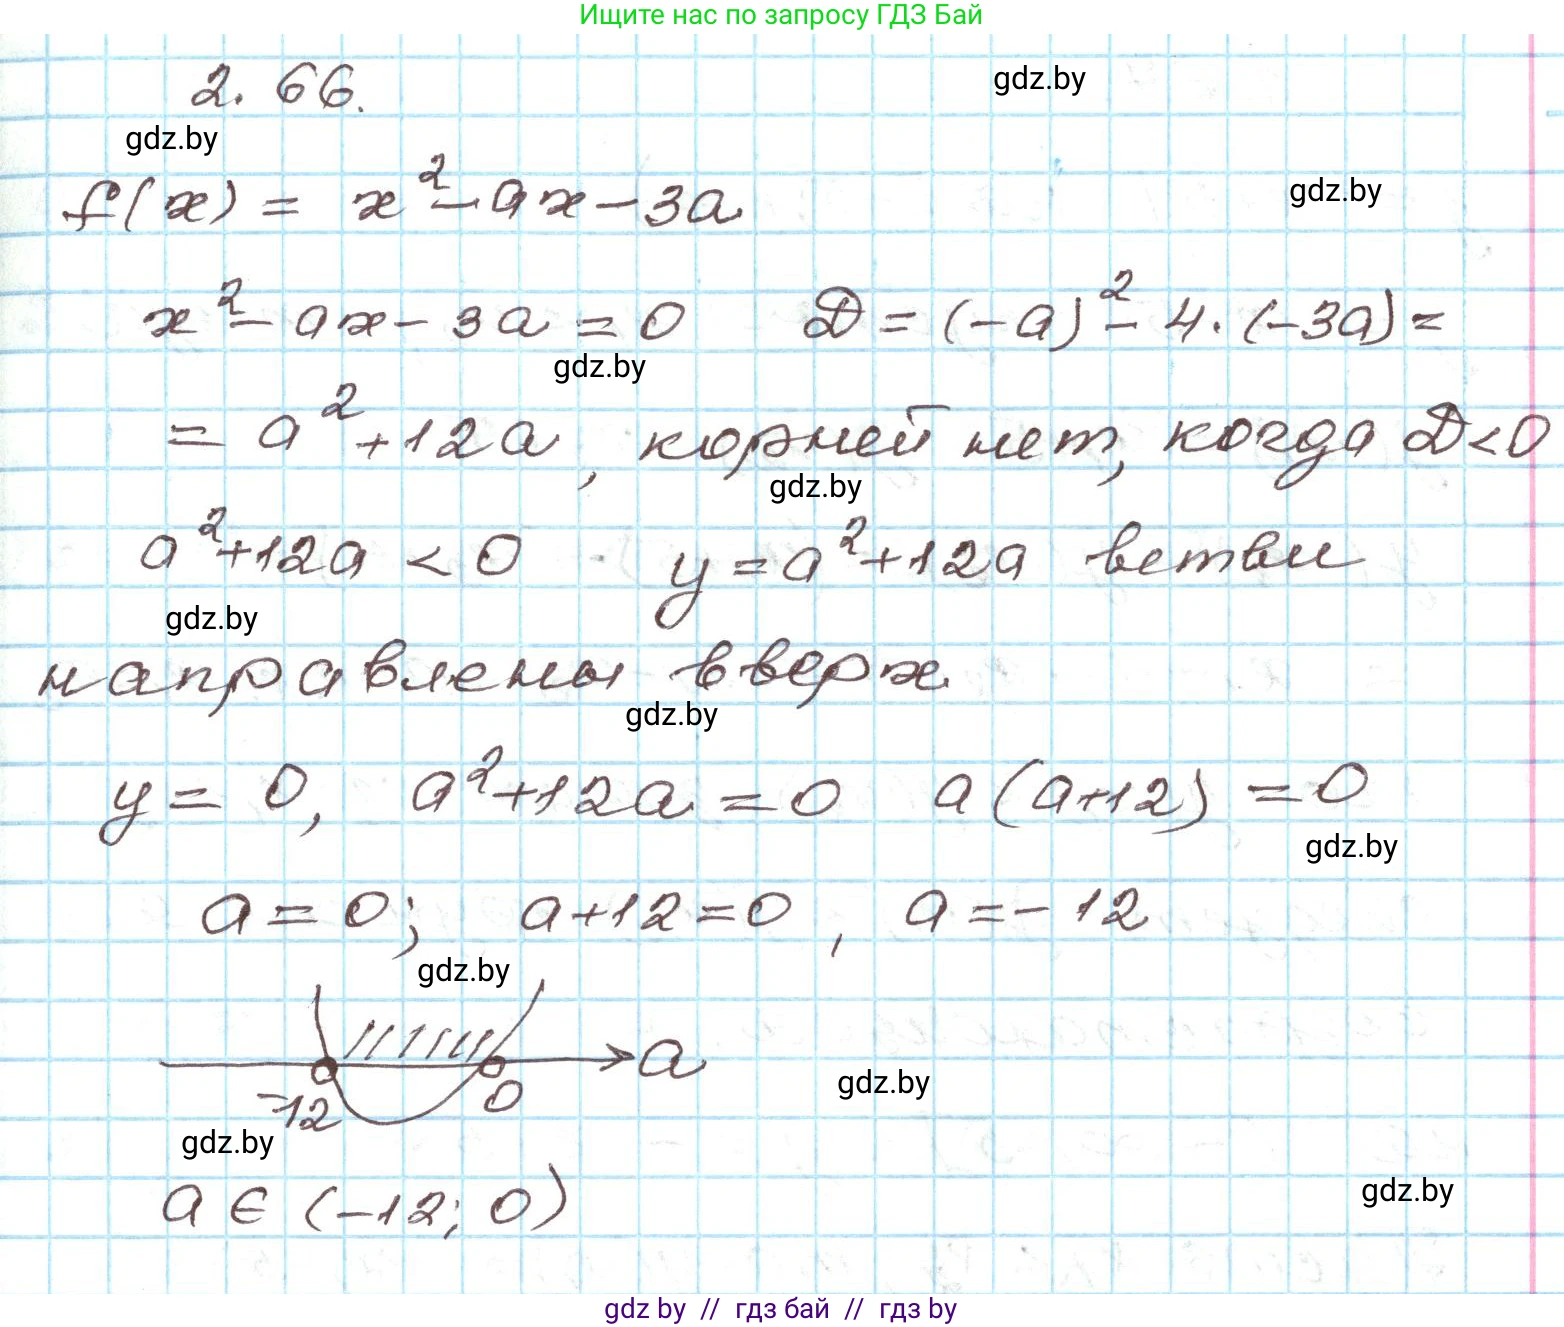 Ищите нас по запросу ГДЗ Бай
2. 66.
gdz.by
gdz.by
f(x) = x² - ax - 3a
gdz.by
x² - ax - 3a = 0 D = (-a)² - 4·(-3a) =
gdz.by
= a² + 12a, корней нет, когда D < 0
gdz.by
a² + 12a < 0 y = a² + 12a ветви
gdz.by
направлены вверх
gdz.by
y = 0, a² + 12a = 0 a(a+12) = 0
gdz.by
a = 0; a + 12 = 0, a = - 12
gdz.by
a
gdz.by
-12 0
gdz.by
a ∈ (-12; 0)
gdz.by
gdz by // гдз бай // гдз by